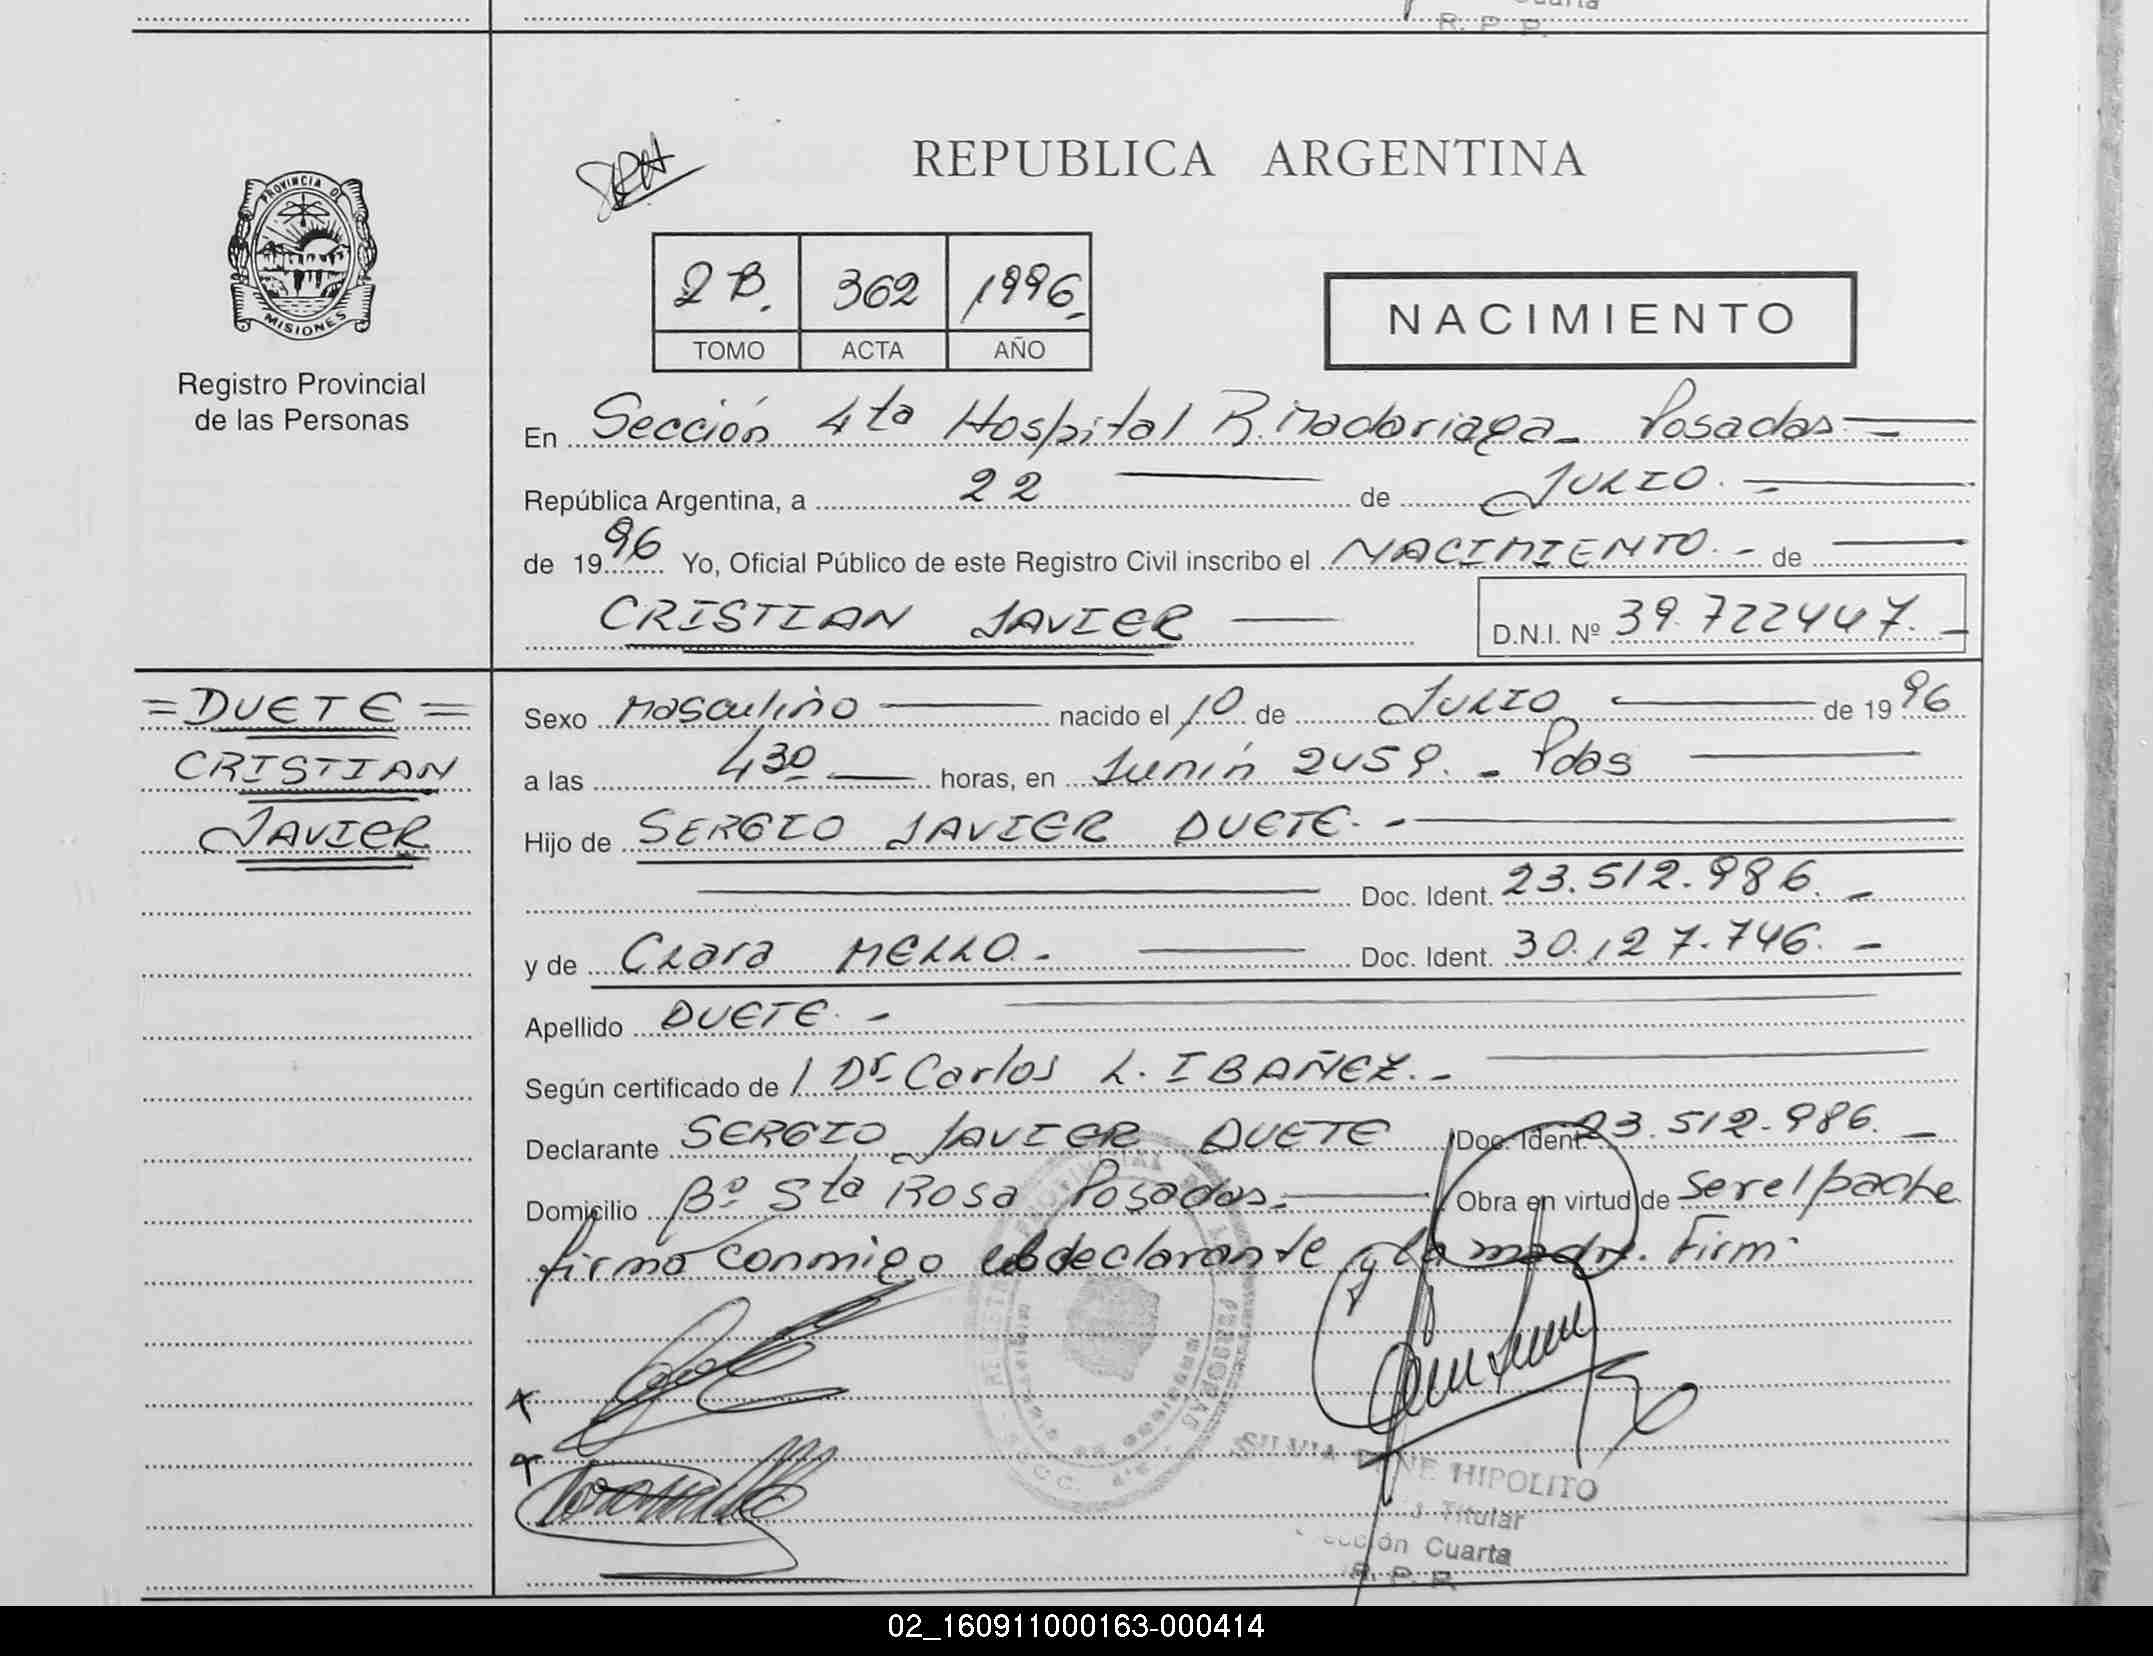 R. P. P.
REPUBLICA ARGENTINA
PROVINCIA DE
MISIONES
Registro Provincial
de las Personas
2 B. 362 1996
TOMO ACTA AÑO
NACIMIENTO
En Sección 4ta Hospital R. Madariaga - Posadas
República Argentina, a 22 de JULIO.
de 1996 Yo, Oficial Público de este Registro Civil inscribo el NACIMIENTO. - de
CRISTIAN JAVIER D.N.I. Nº 39.722447.
= DUETE =
CRISTIAN
JAVIER
Sexo Masculino nacido el 10 de JULIO de 1996
a las 430 horas, en Junín 2459. - Pdas
Hijo de SERGIO JAVIER DUETE. -
Doc. Ident. 23.512.986. -
y de Clara MELLO. - Doc. Ident. 30.127.746. -
Apellido DUETE. -
Según certificado de l Dr. Carlos L. IBAÑEZ. -
Declarante SERGIO JAVIER DUETE Doc. Ident. 23.512.986. -
Domicilio Bº Sta Rosa Posadas. - Obra en virtud de ser el padre
firma conmigo el declarante y la madre. Firm
SILVIA HIPOLITO
Titular
Sección Cuarta
R. P. P.
02_160911000163-000414